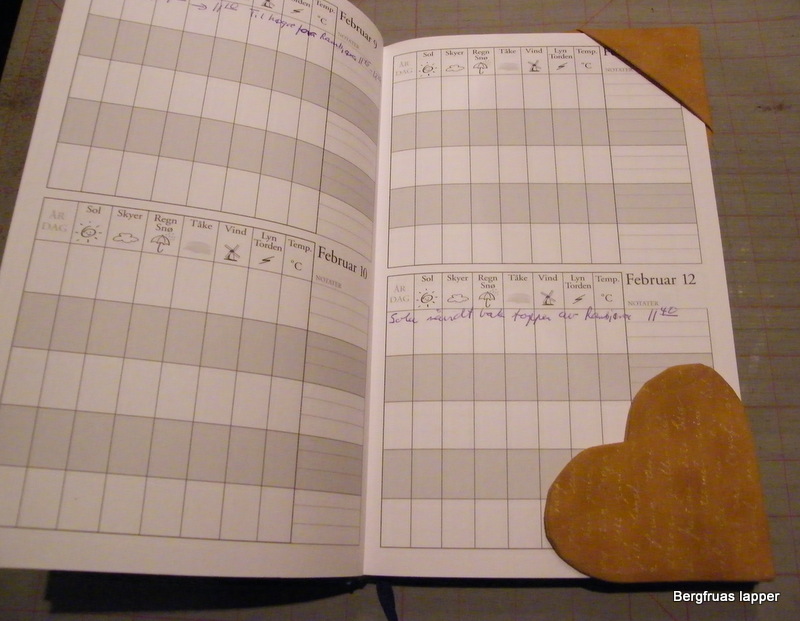 Temp.
Februar 9
→ 11
Til høyre
°C
NOTATER
ÅR DAG Sol Skyer Regn Snø Tåke Vind Lyn Torden Temp. °C
Februar 10
NOTATER
ÅR DAG Sol Skyer Regn Snø Tåke Vind Lyn Torden Temp. °C
NOTATER
ÅR DAG Sol Skyer Regn Snø Tåke Vind Lyn Torden Temp. °C
Februar 12
NOTATER
bak toppen av 11 40
Bergfruas lapper